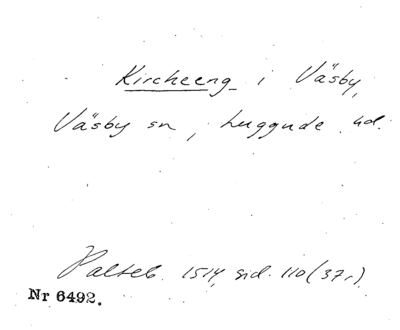 Kircheeng i Väsby,
Väsby sn, Luggude hd.
Palteb. 1514, sid. 110 (37r)
Nr 6492.